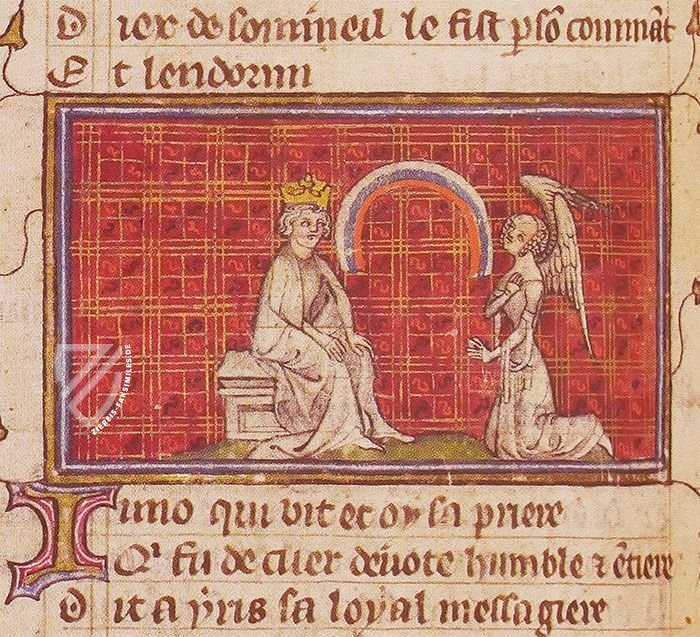 Dieu de sommeil le fist p sõ commãt
Et lendormi
Iuno qui vit et oy sa priere
Q̃ fu de cuer deuote humble ⁊ ẽtiere
Dit a yris sa loyal messagiere
ZIEREIS-FAKSIMILES.DE